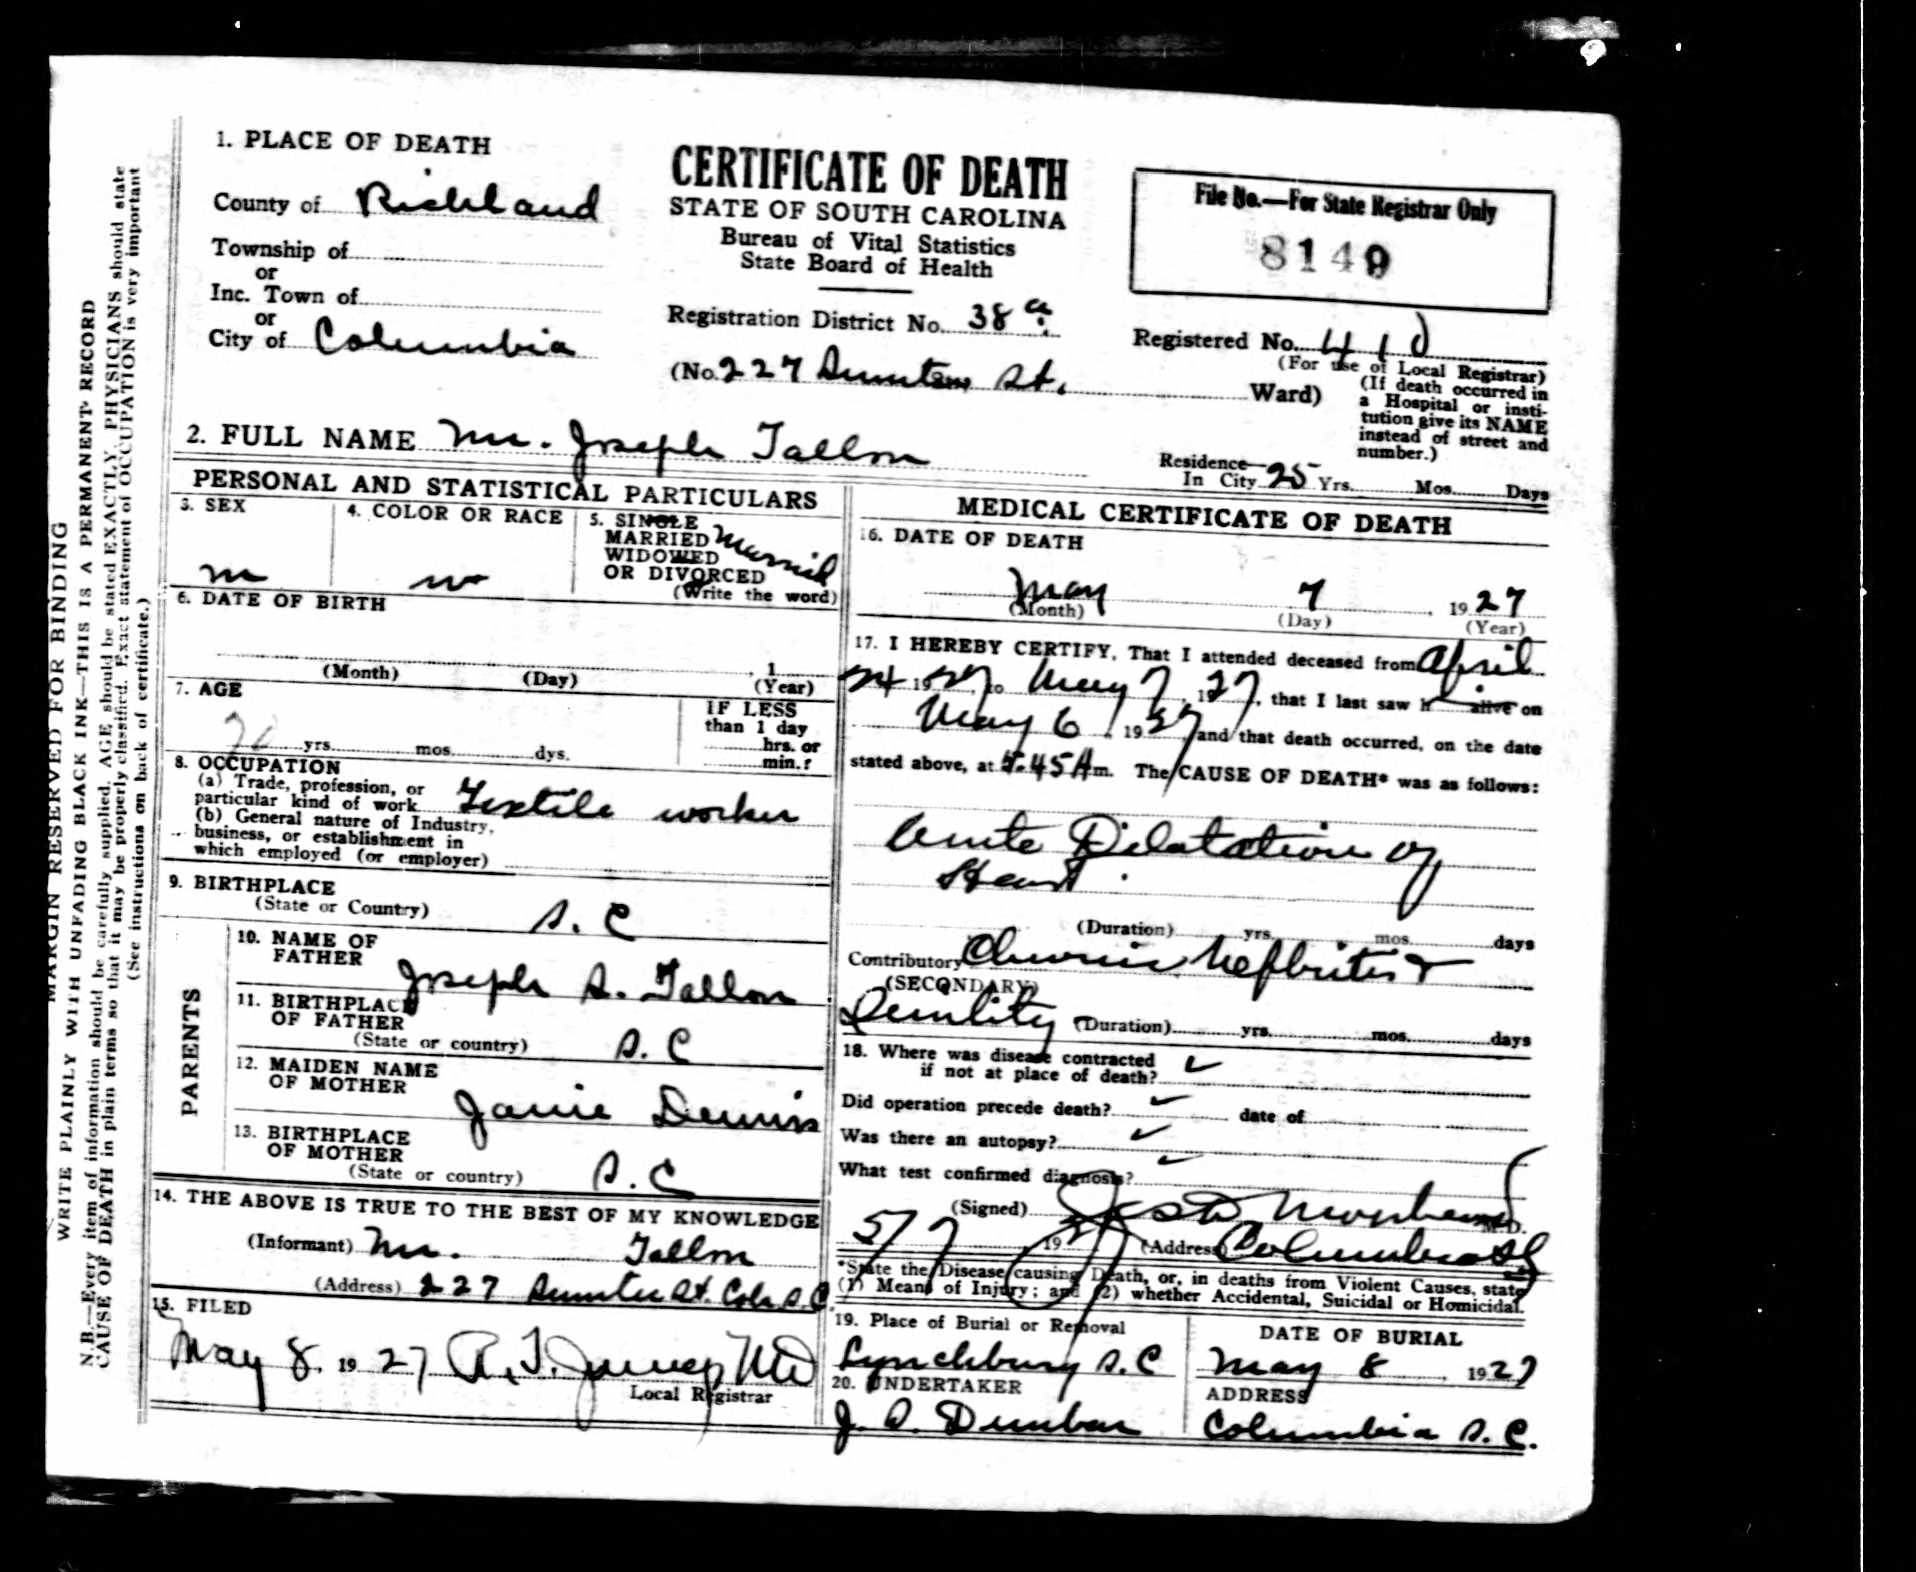 MARGIN RESERVED FOR BINDING
WRITE PLAINLY WITH UNFADING BLACK INK—THIS IS A PERMANENT RECORD
N.B.—Every item of information should be carefully supplied. AGE should be stated EXACTLY. PHYSICIANS should state
CAUSE OF DEATH in plain terms so that it may be properly classified. Exact statement of OCCUPATION is very important
(See instructions on back of certificate.)
1. PLACE OF DEATH
County of Richland
Township of
or
Inc. Town of
or
City of Columbia
CERTIFICATE OF DEATH
STATE OF SOUTH CAROLINA
Bureau of Vital Statistics
State Board of Health
Registration District No. 38 a
(No. 227 Sumter St. Ward)
File No.—For State Registrar Only
8149
Registered No. 410
(For use of Local Registrar)
(If death occurred in
a Hospital or insti-
tution give its NAME
instead of street and
number.)
2. FULL NAME Mr. Joseph Tallon
Residence
In City 25 Yrs. Mos. Days
PERSONAL AND STATISTICAL PARTICULARS
3. SEX
m
4. COLOR OR RACE
w
5. SINGLE
MARRIED
WIDOWED
OR DIVORCED
Married
(Write the word)
6. DATE OF BIRTH
1
(Month) (Day) (Year)
7. AGE
yrs. mos. dys.
IF LESS
than 1 day
hrs. or
min.?
8. OCCUPATION
(a) Trade, profession, or
particular kind of work Textile worker
(b) General nature of Industry,
business, or establishment in
which employed (or employer)
9. BIRTHPLACE
(State or Country) S. C
PARENTS
10. NAME OF
FATHER Joseph S. Tallon
11. BIRTHPLACE
OF FATHER
(State or country) S. C
12. MAIDEN NAME
OF MOTHER Janie Dennis
13. BIRTHPLACE
OF MOTHER
(State or country) S. C
14. THE ABOVE IS TRUE TO THE BEST OF MY KNOWLEDGE
(Informant) Mr. Tallon
(Address) 227 Sumter St. Cola S. C.
15. FILED
May 8. 19 27 MD
Local Registrar
MEDICAL CERTIFICATE OF DEATH
16. DATE OF DEATH
May 7 , 19 27
(Month) (Day) (Year)
17. I HEREBY CERTIFY, That I attended deceased from April
24 19 27, to May 7, 19 27, that I last saw h alive on
May 6, 19 27 and that death occurred, on the date
stated above, at 5.45 A m. The CAUSE OF DEATH* was as follows:
Acute Dilatation of
Heart.
(Duration) yrs. mos. days
Contributory Chronic Nefbritis &
(SECONDARY)
Senility (Duration) yrs. mos. days
18. Where was disease contracted
if not at place of death? ✓
Did operation precede death? ✓ date of
Was there an autopsy? ✓
What test confirmed diagnosis? ✓
(Signed) M.D.
5/7 19 27 (Address) Columbia SC
*State the Disease causing Death, or, in deaths from Violent Causes, state
(1) Means of Injury; and (2) whether Accidental, Suicidal or Homicidal.
19. Place of Burial or Removal
Lynchburg S. C
DATE OF BURIAL
May 8 , 19 27
20. UNDERTAKER
J. S. Dunbar
ADDRESS
Columbia S. C.